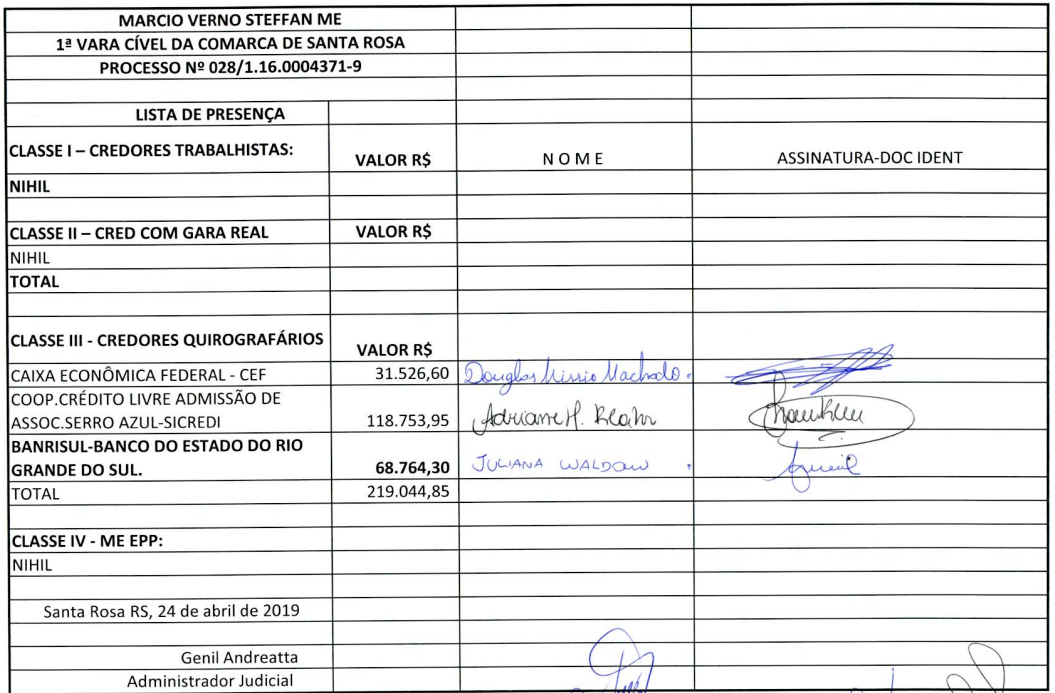 MARCIO VERNO STEFFAN ME
1ª VARA CÍVEL DA COMARCA DE SANTA ROSA
PROCESSO Nº 028/1.16.0004371-9
LISTA DE PRESENÇA
CLASSE I – CREDORES TRABALHISTAS: VALOR R$ N O M E ASSINATURA-DOC IDENT
NIHIL
CLASSE II – CRED COM GARA REAL VALOR R$
NIHIL
TOTAL
CLASSE III - CREDORES QUIROGRAFÁRIOS VALOR R$
CAIXA ECONÔMICA FEDERAL - CEF 31.526,60 Douglas Missio Machado
COOP.CRÉDITO LIVRE ADMISSÃO DE
ASSOC.SERRO AZUL-SICREDI 118.753,95 Adriane H.
BANRISUL-BANCO DO ESTADO DO RIO
GRANDE DO SUL. 68.764,30 JULIANA WALDOW
TOTAL 219.044,85
CLASSE IV - ME EPP:
NIHIL
Santa Rosa RS, 24 de abril de 2019
Genil Andreatta
Administrador Judicial